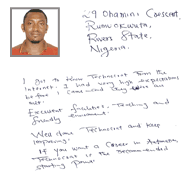 29 Ohamini Crescent,
Rumuokwuta,
Rivers State,
Nigeria.
I got to know Technocient from the
internet. I had very high expectations
before I came and they were all
met.
Excellent facilities, teaching and
friendly environment.
Well done Technocient and keep
improving.
If you want a career in Automation
Technocient is the recommended
starting point